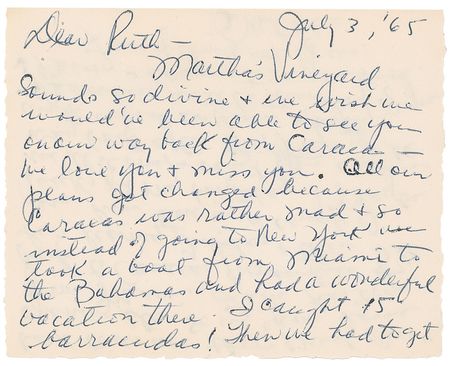 July 3, '65
Dear Ruth —
Martha's Vineyard
Sounds so divine + we wish we
would've been able to see you
on our way back from Caracas —
We love you + miss you. All our
plans got changed because
Caracas was rather mad + so
instead of going to New York we
took a boat from Miami to
the Bahamas and had a wonderful
vacation there. I caught 15
barracudas! Then we had to get